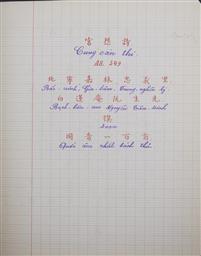 宮怨詩
Cung oán thi.
AB. 549
北寧嘉林忠義里
Bắc-ninh, Gia-lâm, Trung-nghĩa lý
白蓮庵阮生先
Bạch-liên-am Nguyễn
撰
soạn
國音一百首
Quốc âm nhất bách thủ.